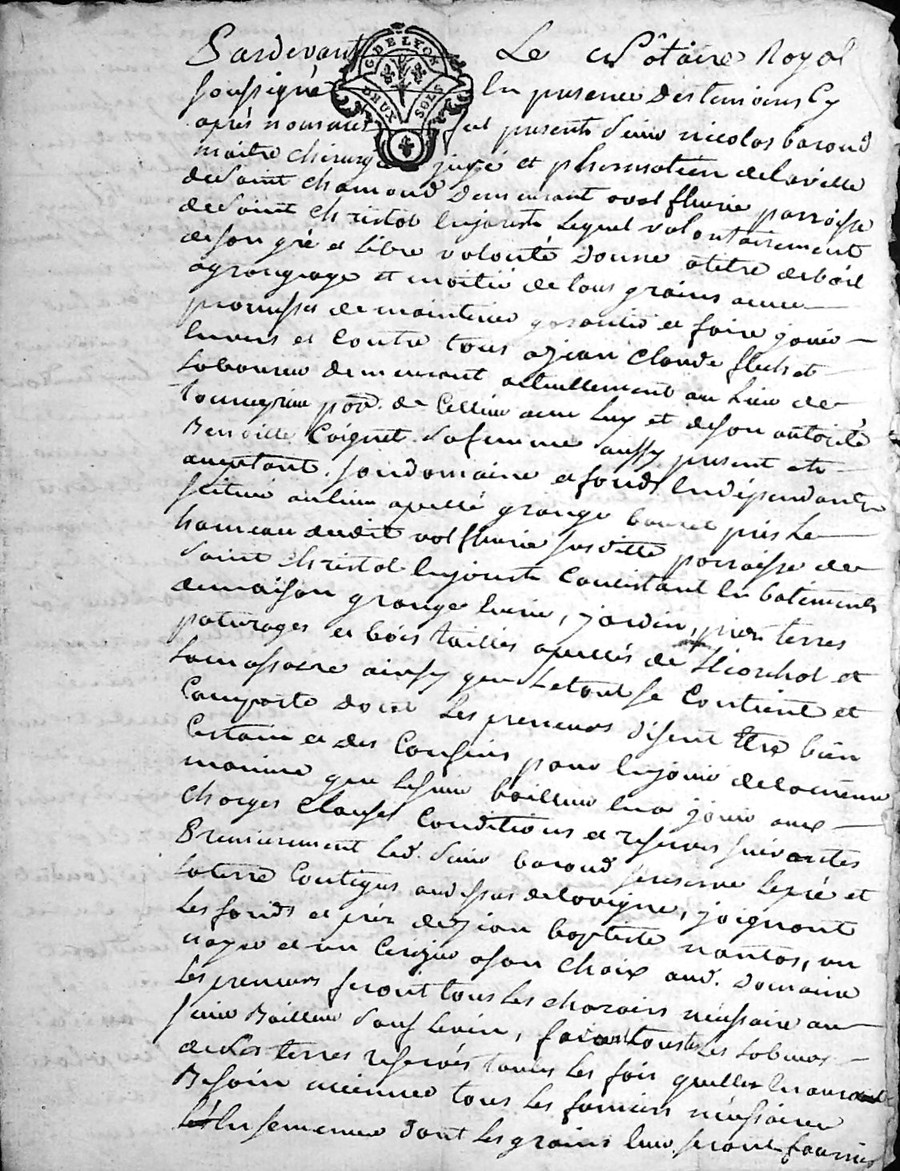 Pardevant Le Notaire Royal
soussigné En presence des temoins Cy
après nommés fut present sieur nicolas baroud
maitre chirurgien juré et phermatien delaville
de Saint chamond Demeurant a valfleurie parroisse
de Saint christol Lejarest Lequel volontairement
deson gré et Libre volonté Donne atitre debail
agrangeage et moitié de tous grains avec
promesse de maintenir garantir et faire jouir
Envers et Contre tous ajean Claude flechet
Laboureur demeurant actuellement au Lieu de
parr. de Cellieu avec Luy et deson autorité
Benoitte Coignet Safemme aussy present et
acceptant, Sondomaine et fonds Endépendants
scitué aulieu apellé grange près Le
hameau dudit valfleurie susditte parroisse de
Saint christol Lejarest Consistant En batiments
demaison grange Ecurie, jardin, prés terres
paturages et bois taillies apellés de et
ainsy que Letout se Contient et
Comporte dont Les preneurs disent Etre bien
Certains et des Confins pour Enjouir delameme
maniere que Lesieur bailleur En a jouir aux
charges Clauses Conditions et reserves suivantes
Premierement Led. Sieur baroud sereserve Lepré et
Laterre Contigus audessus delavigne, joignant
Les fonds et prez dejean baptiste nantas, un
noyer et un Cerizier ason choix aud. Domaine
Les preneurs feront tous Les charois nécessaire au
sieur Bailleur Sauf Levin, feront toustes Les Labours
de Les terres reservés toutes Les fois quelles En auront
Besoin meme tous Les fumiers nécessaires
Ensemence dont Les grains Leur seront fournis
G. DE LYON
DEUX SOLS